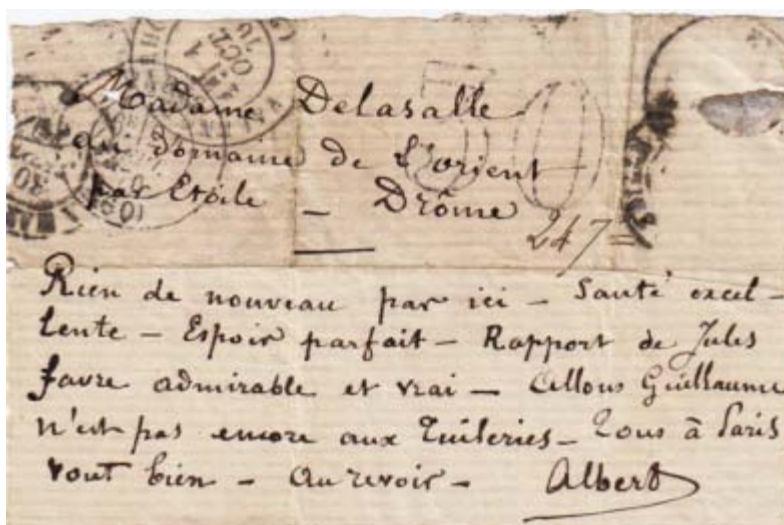 Madame Delasalle
au domaine de L'orient
par Etoile _ Drôme
247=
Rien de nouveau par ici – Santé excel-
lente – Espoir parfait – Rapport de Jules
favre admirable et vrai – Allons Guillaume
n'est pas encore aux Tuileries – Tous à Paris
vont bien – Au revoir – Albert